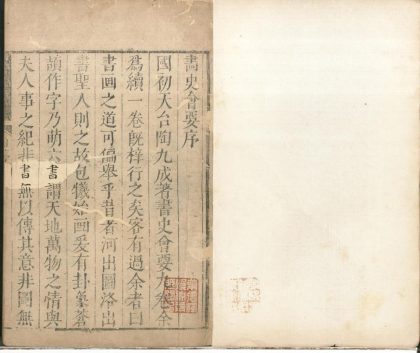 畵史會要序
國初天台陶九成著書史會要九卷余
爲續一卷既梓行之矣客有過余者曰
書画之道可偏舉乎昔者河出圖洛出
書聖人則之故包犧始画爰有卦篆蒼
頡作字乃萌六書謂天地萬物之情與
夫人事之紀非書無以傳其意非圖無